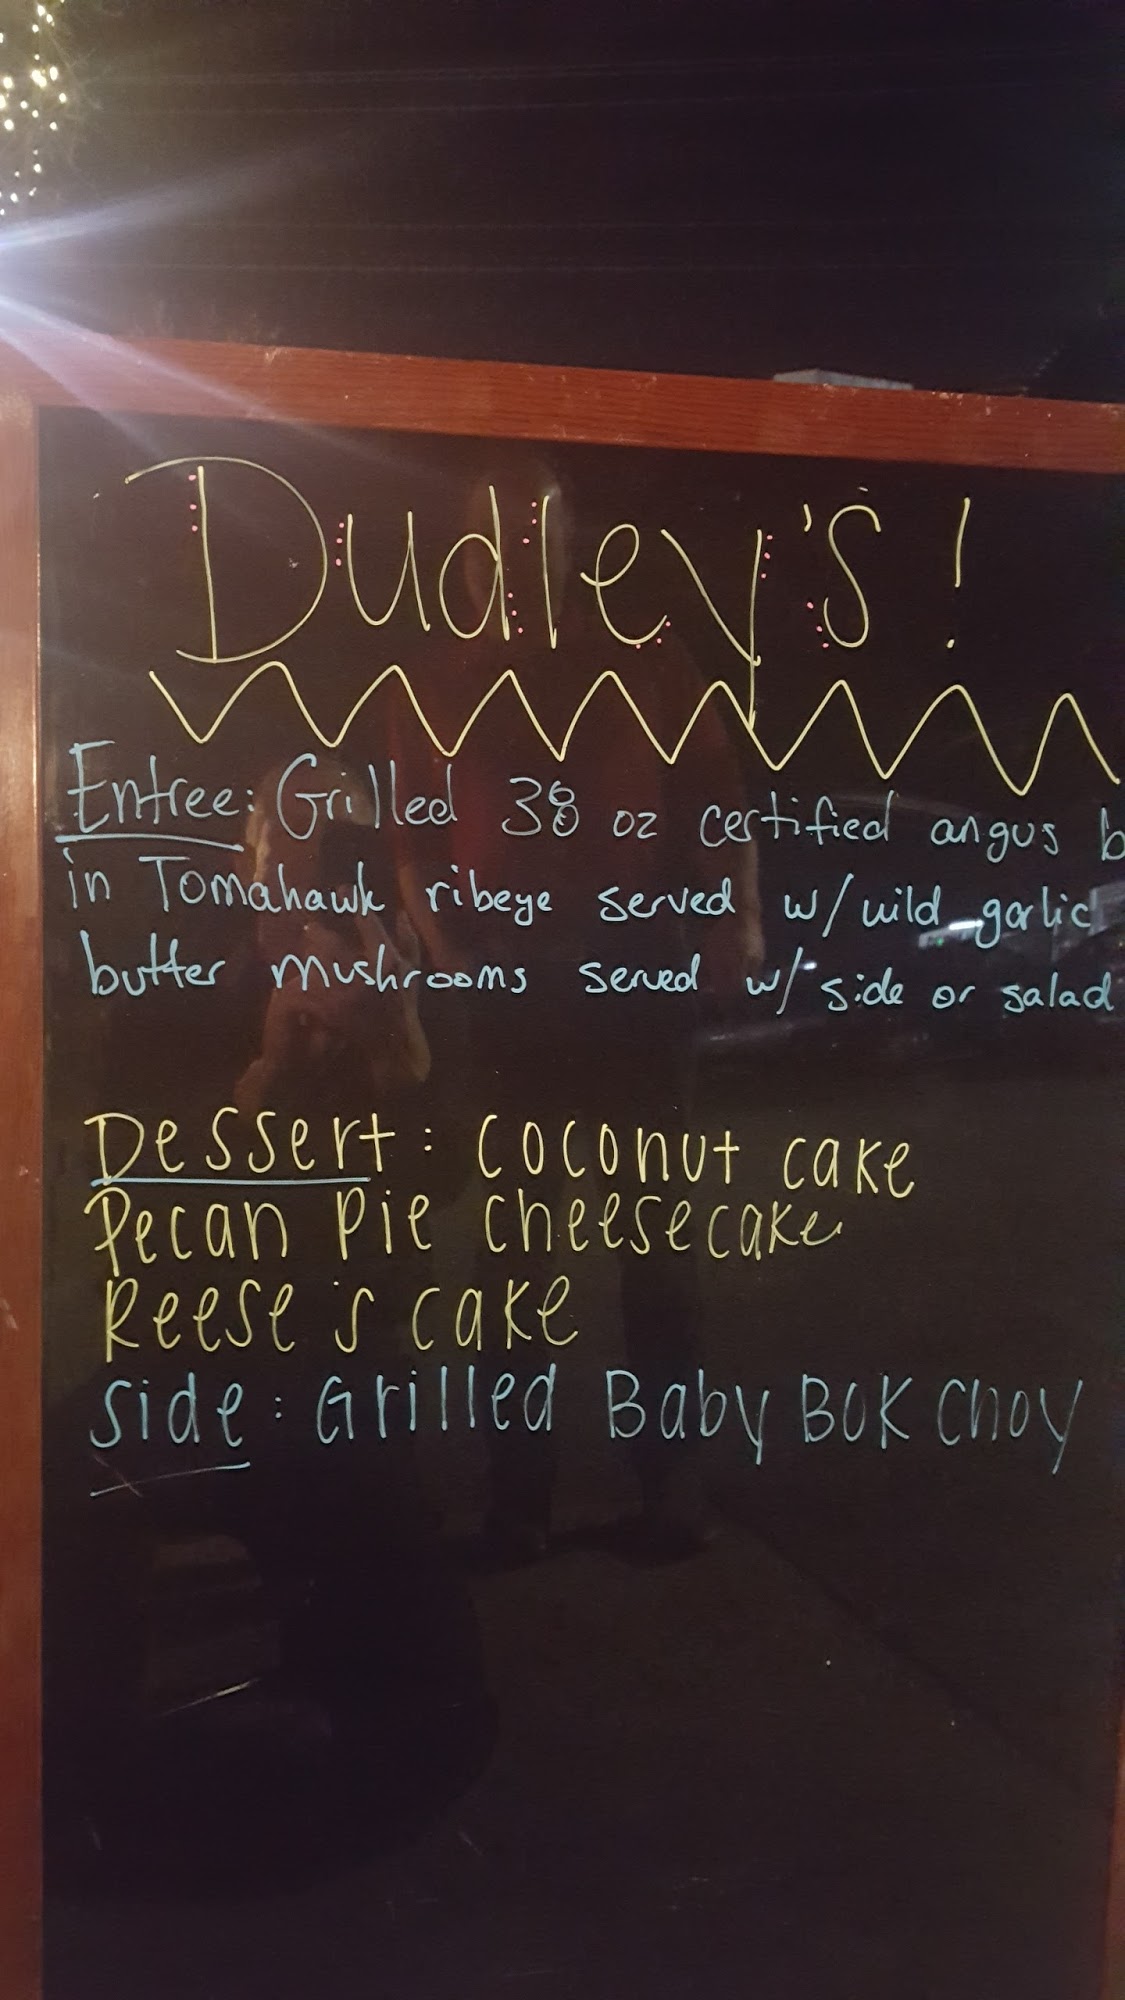 Dudley's!
Entree: Grilled 38 oz certified angus b
in Tomahawk ribeye served w/ wild garlic
butter mushrooms served w/ side or salad
Dessert: coconut cake
Pecan Pie cheesecake
Reese's cake
Side: Grilled Baby Bok Choy